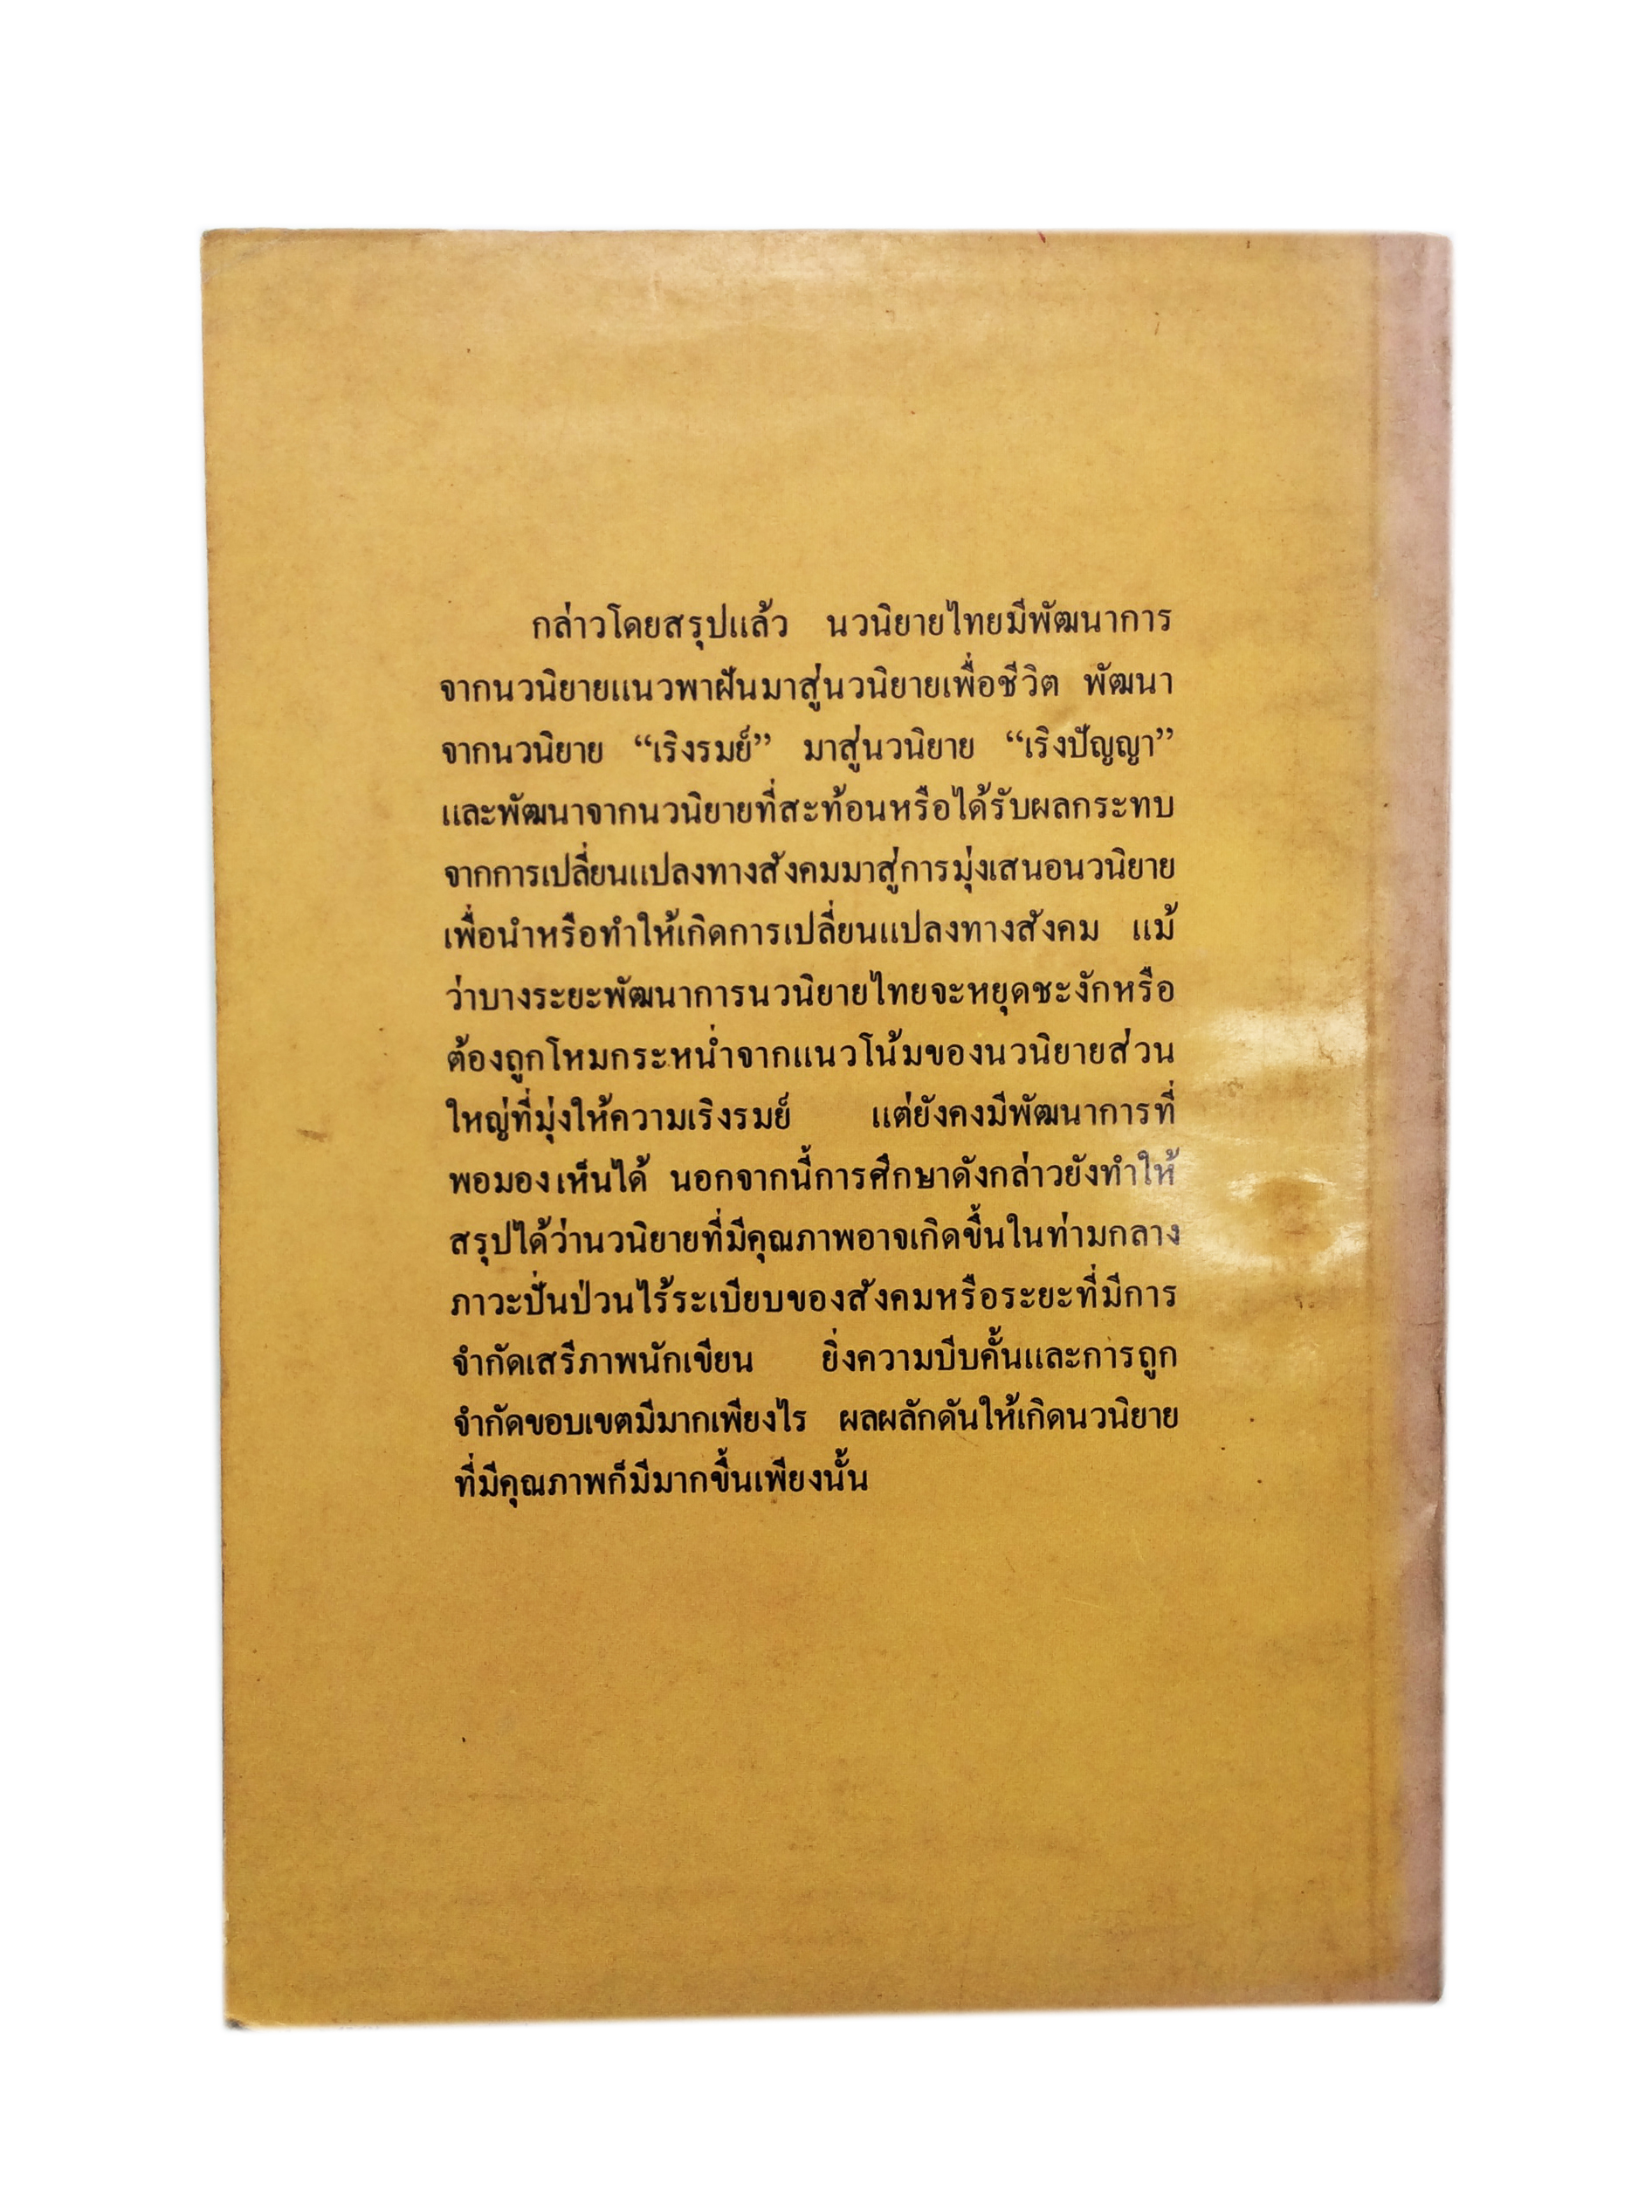 กล่าวโดยสรุปแล้ว นวนิยายไทยมีพัฒนาการ
จากนวนิยายแนวพาฝันมาสู่นวนิยายเพื่อชีวิต พัฒนา
จากนวนิยาย “เริงรมย์” มาสู่นวนิยาย “เริงปัญญา”
และพัฒนาจากนวนิยายที่สะท้อนหรือได้รับผลกระทบ
จากการเปลี่ยนแปลงทางสังคมมาสู่การมุ่งเสนอนวนิยาย
เพื่อนำหรือทำให้เกิดการเปลี่ยนแปลงทางสังคม แม้
ว่าบางระยะพัฒนาการนวนิยายไทยจะหยุดชะงักหรือ
ต้องถูกโหมกระหน่ำจากแนวโน้มของนวนิยายส่วน
ใหญ่ที่มุ่งให้ความเริงรมย์ แต่ยังคงมีพัฒนาการที่
พอมองเห็นได้ นอกจากนี้การศึกษาดังกล่าวยังทำให้
สรุปได้ว่านวนิยายที่มีคุณภาพอาจเกิดขึ้นในท่ามกลาง
ภาวะปั่นป่วนไร้ระเบียบของสังคมหรือระยะที่มีการ
จำกัดเสรีภาพนักเขียน ยิ่งความบีบคั้นและการถูก
จำกัดขอบเขตมีมากเพียงไร ผลผลักดันให้เกิดนวนิยาย
ที่มีคุณภาพก็มีมากขึ้นเพียงนั้น